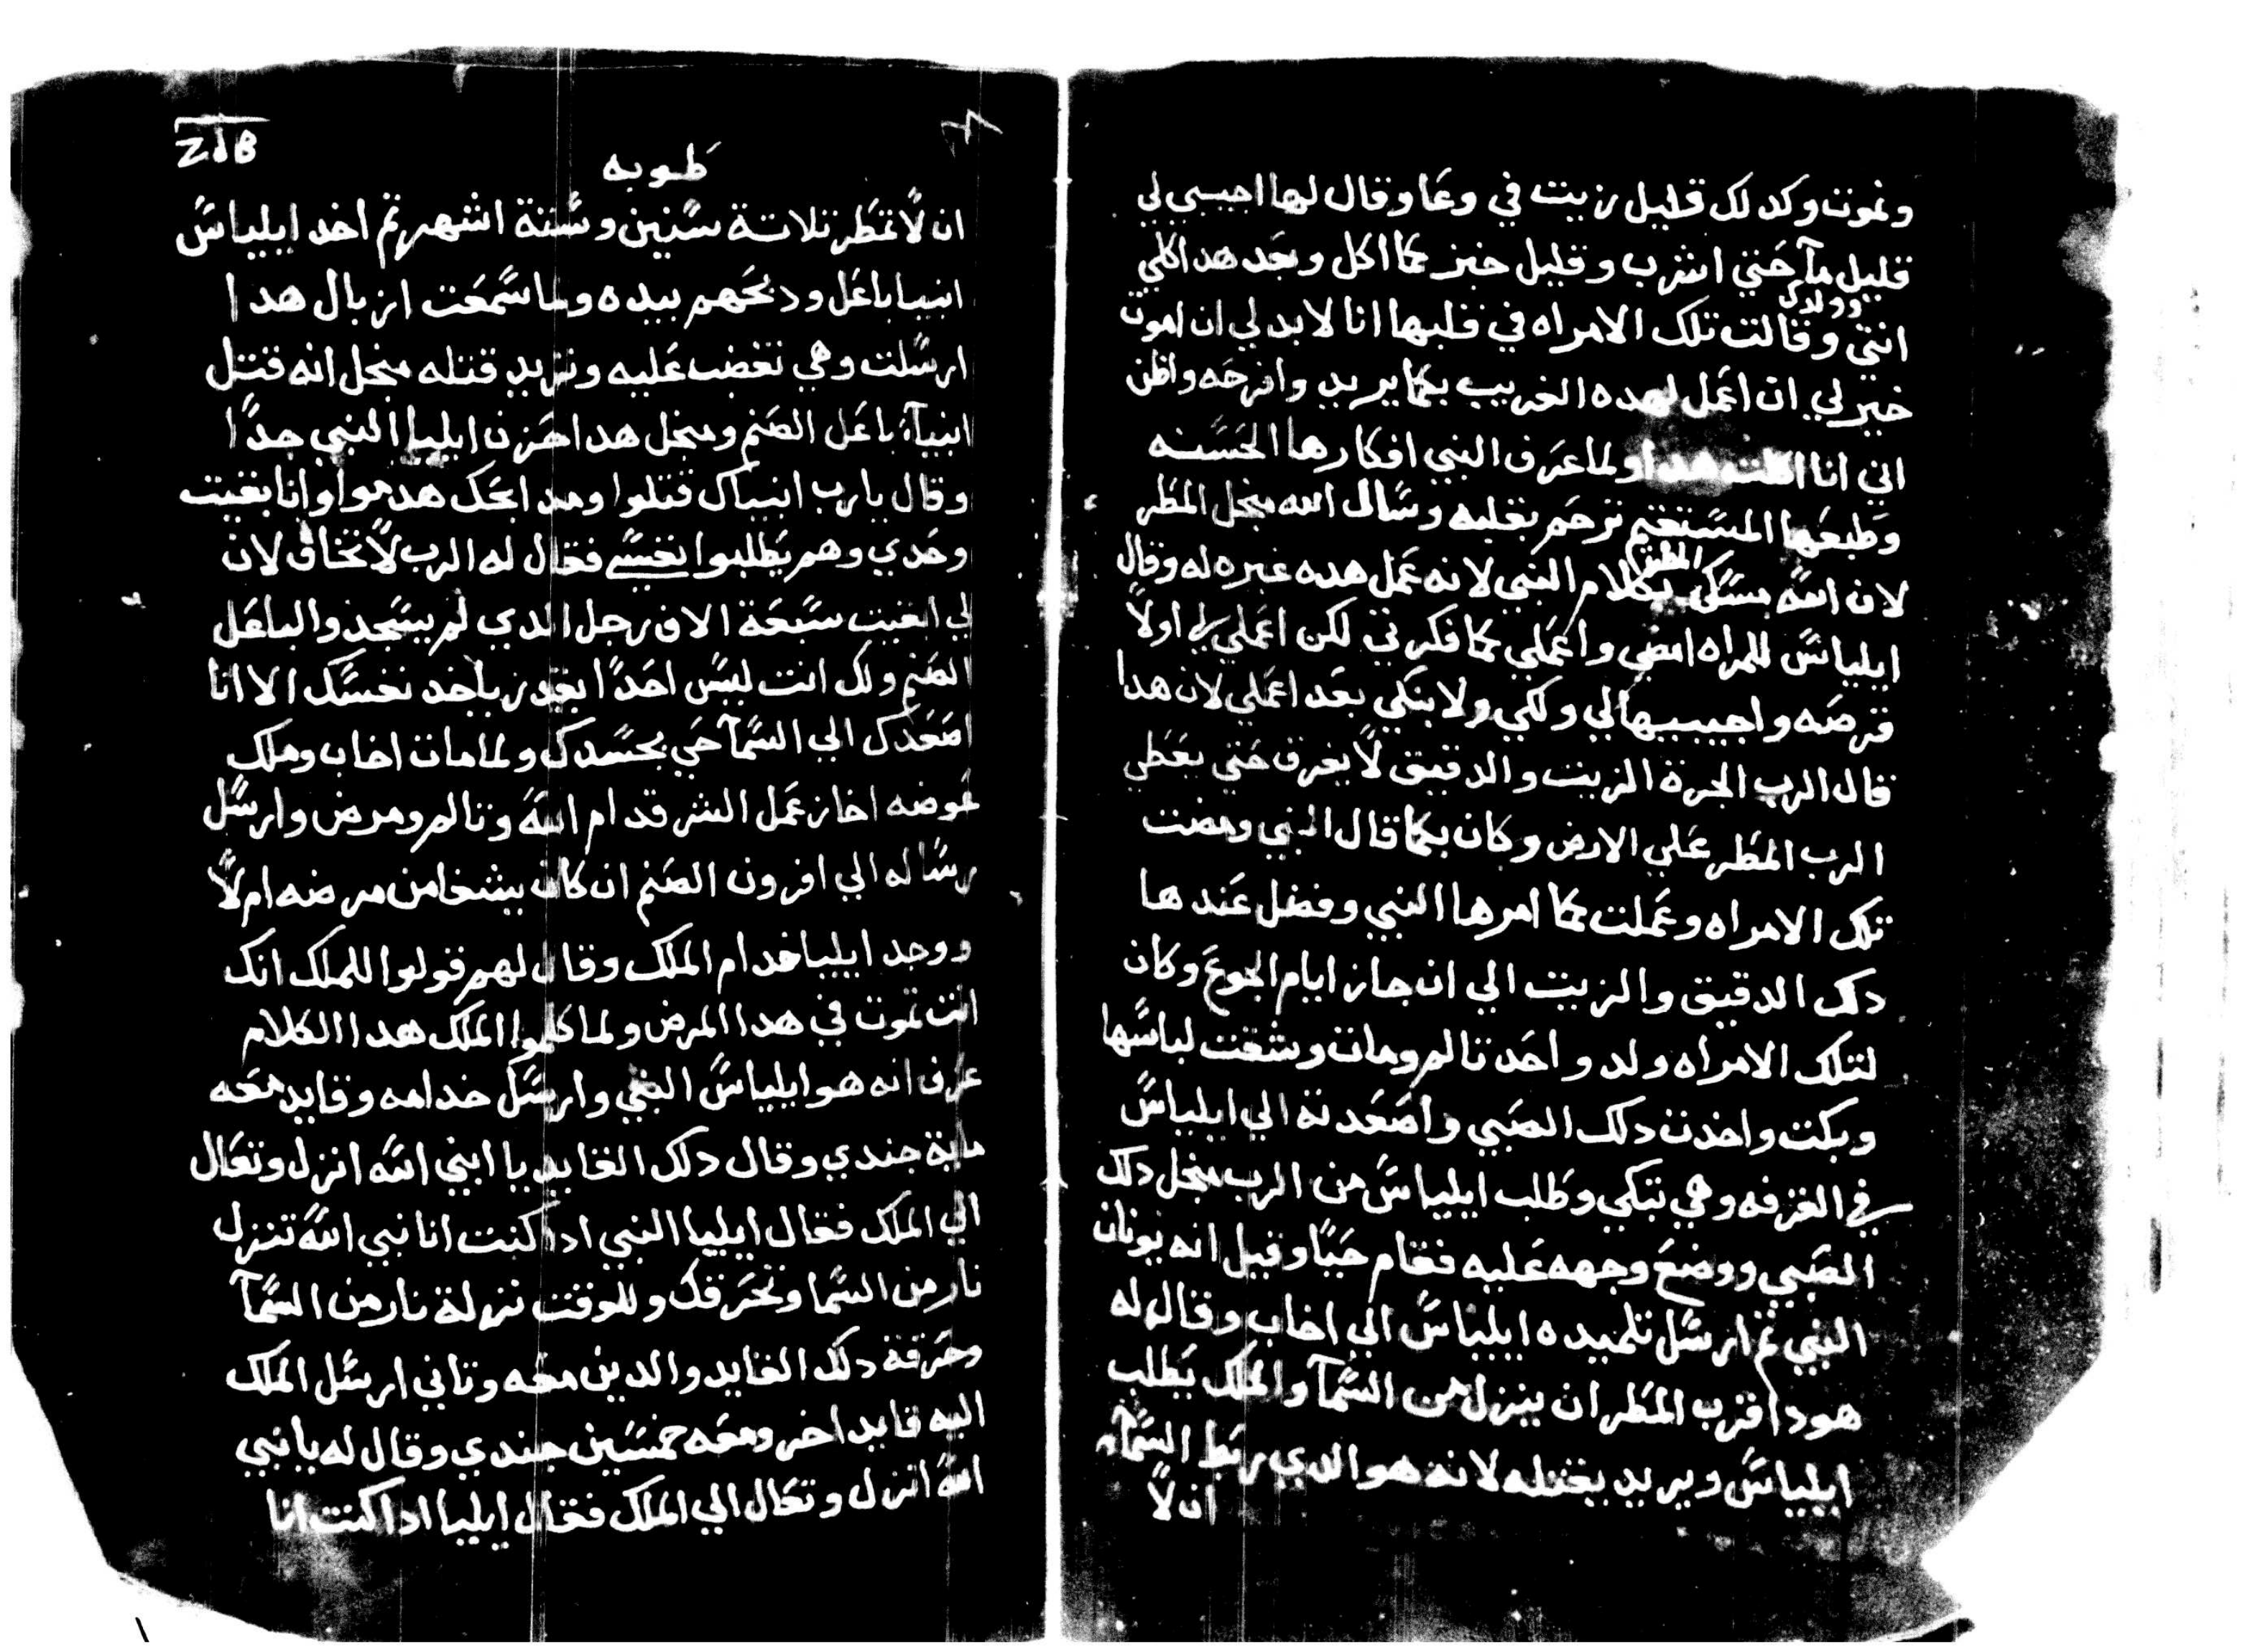 ونموت وكدلك قليل زيت في وعا وقال لها اجيبي لي
قليل مآ حتي اشرب وقليل خبز كما اكل وبعد هدا كلي
وولدك
انتي وقالت تلك الامراه في قلبها انا لابد لي ان اموت
خير لي ان اعمل لهده الغريب بكما يريد وافرحه واظن
اني انا اكلت هدا ولما عرف النبي افكارها الحسنه
وطبعها المستقيم ترحم بقلبه وسال الله منجل المطر
المطر
لان الله يسكن بكلام النبي لانه عمل هده غيره له وقال
ايلياس للمراه امضي واعملي كما فكرتي لكن اعملي لي اولاً
قرصه واجيبيها لي ولكي ولابنكي بعد اعملي لان هدا
قال الرب الجرة الزيت والدقيق لا يفرق حتي يعطي
الرب المطر علي الارض وكان بكما قال النبي ومضت
تلك الامراه وعملت كما امرها النبي وفضل عندها
دلك الدقيق والزيت الي ان جاز ايام الجوع وكان
لتلك الامراه ولد واحد تالم ومات وشقت لباسها
وبكت واخدت دلك الصبي واصعدته الي ايلياس
في الغرفه وهي تبكي وطلب ايلياس من الرب منجل دلك
الصبي ووضع وجهه عليه فقام حيًا وقيل انه يونان
النبي تم ارسل تلميده ايلياس الي اخاب وقال له
هودا قرب المطر ان ينزل من السمآ والملك يطلب
ايلياس ويريد يقتله لانه هو الدي ربط السمآ
ان لاً
طوبه
ان لاً تمطر تلاتة سنين وستة اشهر تم اخد ايلياس
انبيا باعل ودبحهم بيده وما سمعت ازبال هدا
ارسلت وهي تغضب عليه وتريد قتله منجل انه قتل
انبيآء باعل الصنم ومنجل هدا حزن ايليا النبي جدًا
وقال يارب انبياك قتلوا ومدابحك هدموا وانا بقيت
وحدي وهم يطلبوا نفسي فقال له الرب لاً تخاف لان
لي ابقيت سبعة الاف رجل الدي لم يسجدوا لباعل
الصنم ولك انت ليس احدًا يقدر ياخد نفسك الا انا
اصعدك الي السمآ حي بجسدك ولما مات اخاب وملك
عوضه اخاز عمل الشر قدام الله وتالم ومرض وارسل
رساله الي افرون الصنم ان كان يشفا من مرضه ام لاً
ووجد ايليا خدام الملك وقال لهم قولوا للملك انك
انت تموت في هدا المرض ولما كلموا الملك هدا الكلام
عرف انه هو ايلياس النبي وارسل خدامه وقايد معه
ماية جندي وقال دلك القايد يا ابني الله انزل وتعال
الي الملك فقال ايليا النبي ادا كنت انا نبي الله تنزل
نار من السما وتحرقك وللوقت نزلة نار من السمآ
وحرقة دلك القايد والدين معه وتاني ارسل الملك
اليه قايد اخر ومعه خمسين جندي وقال له يا نبي
الله انزل وتعال الي الملك فقال ايليا ادا كنت انا